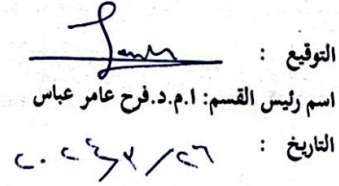 التوقيع :
اسم رئيس القسم: ا.م.د.فرح عامر عباس
التاريخ : ٢٦ / ٣ / ٢٠٢٤